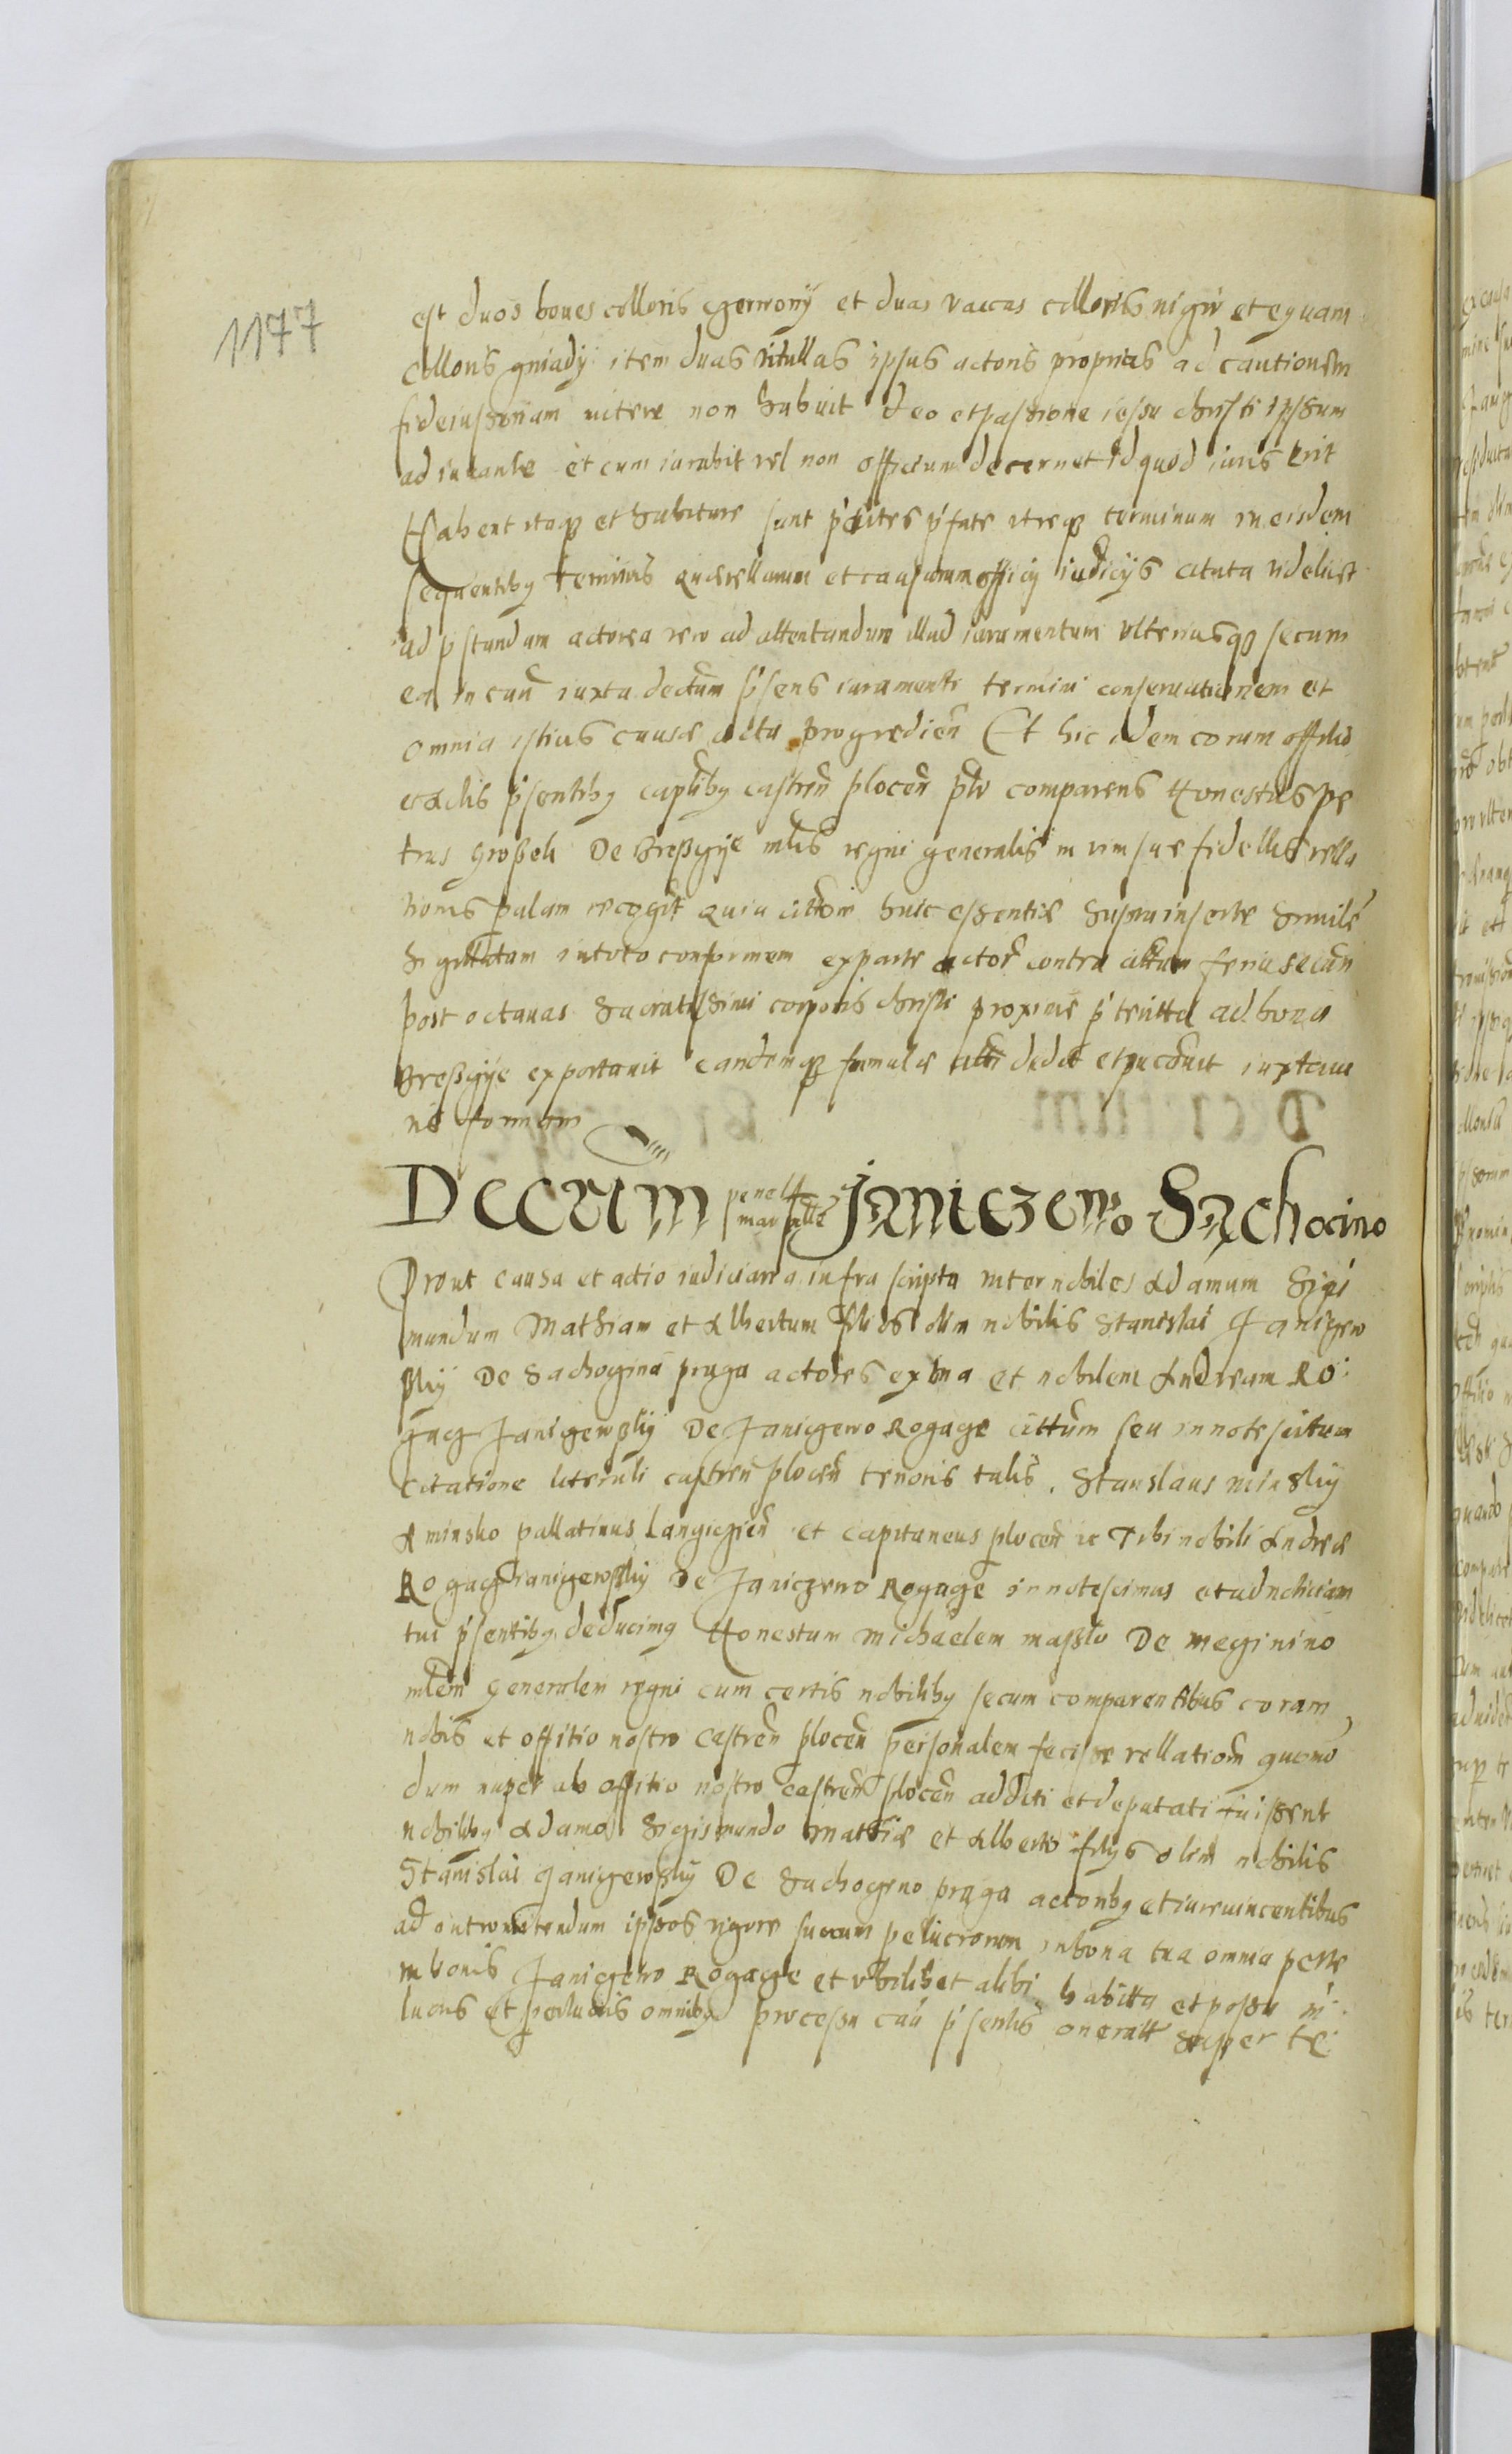 1177
est duos boues colloris czerwony et duas vaccas colloris nigri et equam
colloris gniady item duas vitullas ipsius actoris proprias ad cautionem
fideiussoriam uitere non habuit deo et passione iesu christi ipsum
adiuuante et cum iurabit vel non officium decernet id quod iuris erit
Habent itaqz et habiture sunt p'tes p'fate utreqz terminum in eisdem
sequentiby terminis quaerellarum et causarum officij iudicijs citata videlicet
ad p'standum actorea vero ad attentandum illud iuramentum vlteriusqz secum
ea in cau iuxta dectum p'sens iuramenti termini conseruationem et
omnia istius causae acta progredien Et hic idem coram officio
et actis p'sentiby captliby castren plocen pltr comparens Honestus pe
trus Großek De Brezgye mlis regni generalis in vim suae fidellis rella
tionis palam recogit quia littere huic essentiae superius inserte simile
sigillatam in toto conformem ex parte actor contra cittam feria secun
post octauas sacratissimi corporis christi proxime p'teritta ad bona
Brezgye exportauit eandemqz famulae dedit et publicauit iuxta iu
ris formam
Decretum penale Janiczewo Sachocino
Prout causa et actio iudiciaria infra scripta inter nobiles Adamum Sigis
mundum Mathiam et Albertum filios olim nobilis Stanislai Janiczew
sky De Sachocino praga actores ex vna et nobilem Andream Ro
gacz Janiczewsky De Janiczewo Rogacze cittum seu innotescitum
citatione literali castren plocen tenoris talis. Stanislaus minsky
A minsko pallatinus Langiczien et capitaneus plocen ic Tibi nobili Andreae
Rogacz ianiczewsky De Janiczewo Rogacze innotescimus et ad noticiam
tui p'sentiby deducimy Honestum Michaelem De meginino
mlem generalem regni cum certis nobiliby secum comparentibus coram
nobis et offitio nostro castren plocen personalem fecisse rellationem quomo
dum nuper ab offitio nostro castren plocen additi et deputati fuissent
nobiliby Adamo Sigismundo Mathiae et Alberto filys olim nobilis
Stanislai Janiczewsky De Sachoceno praga actoriby et iure vincentibus
ad intromittendum ipsos vigore suarum pelucrorum in bona tua omnia perte
in bonis Janiczewo Rogacze et vbilibet alibi habitta et possa in
lucris et perlucris omniby processu cau p'sentis oneratt super te